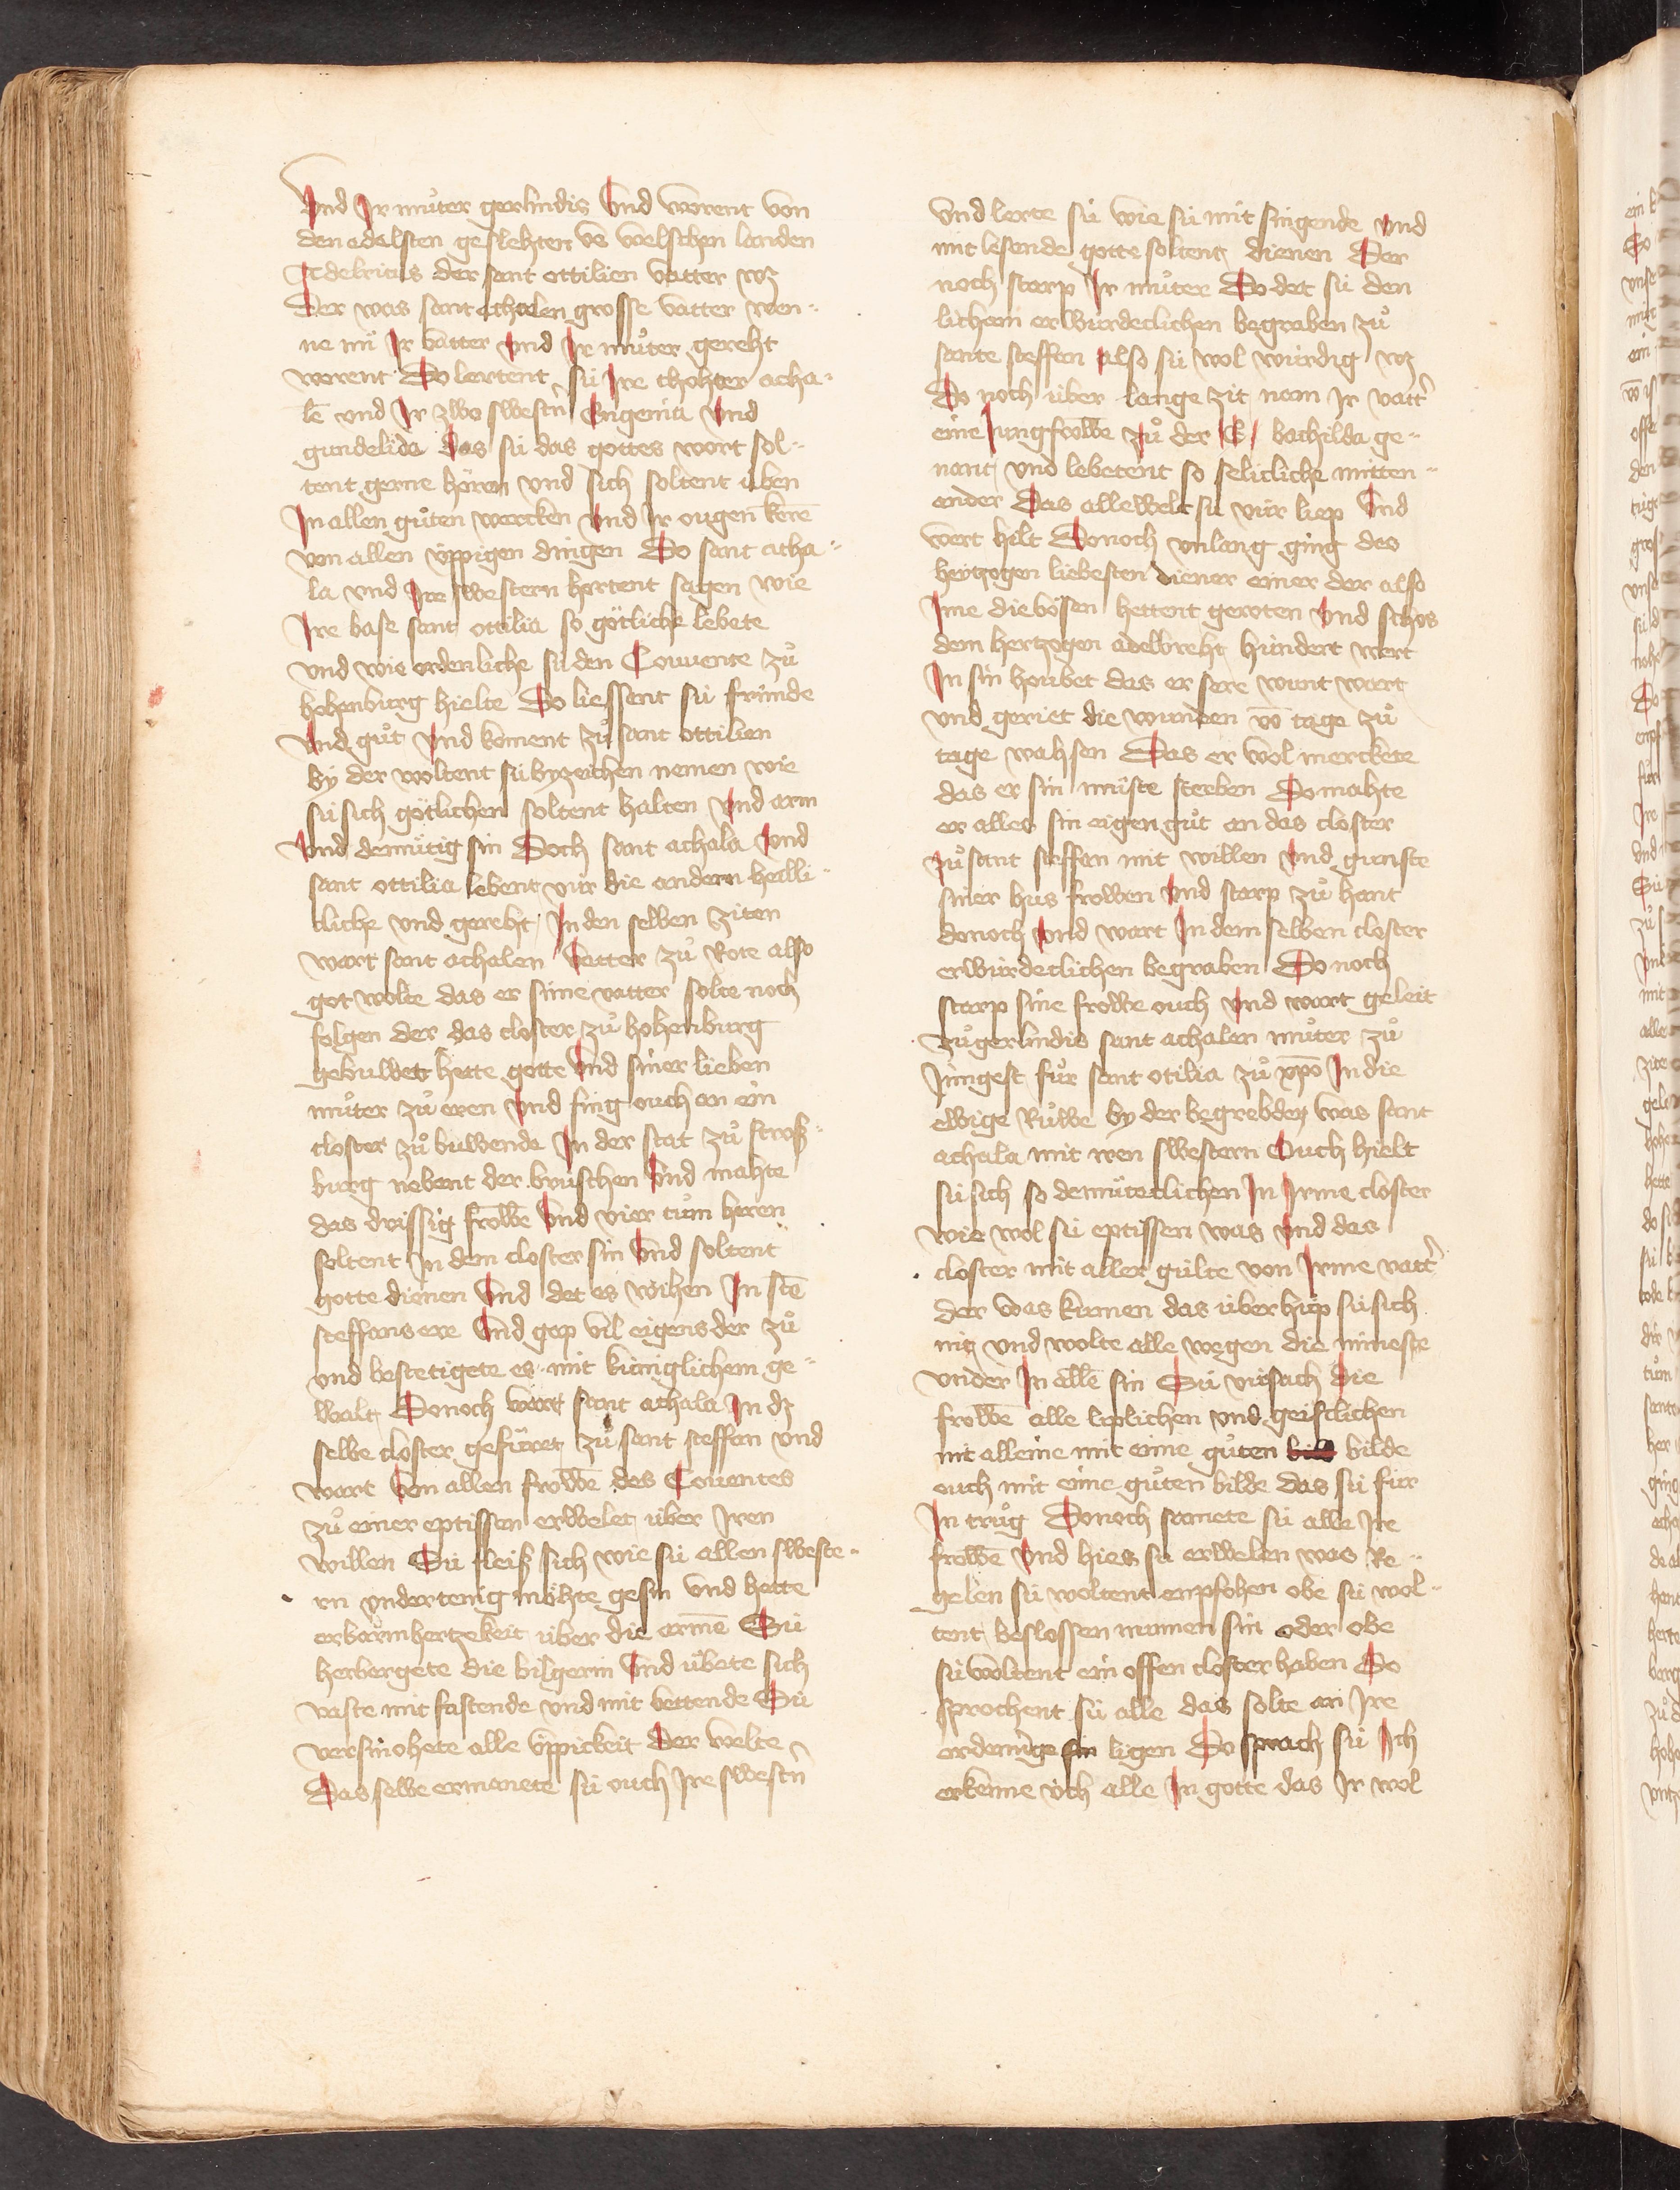 Vnd Ir můter gerlindis Vnd worent von
den edelsten geslehten vō welschen landen
Adelricus der sant ottilien vatter wz
Der was sant athalen grosse vatter wen¬
ne nů Ir vatter vnd Ir můter gereht
worent Do lertent sú Ire thohter atha¬
lē vnd Ir zwo swestn̄ Eugenia Vnd
gundelida das sú das gottes wort sol¬
tent gerne hören vnd sich soltent úben
In allen gůten wercken Vnd Ir ougen kerē
von allen úppigen dingen Do sant atha¬
la vnd Ire swestern hortent sagen wie
Ire base sant ottilia so götliche lebete
vnd wie ordenliche sú den Couuente zů
hohenburg hielte Do liessent sú frúnde
Vnd gůt Vnd koment zů sant ottilien
by der woltent sú byzeichen nemen wie
sú sich götlichen soltent halten Vnd arm
Vnd demütig sin Doch sant athala Vnd
sant ottilia lebent vúr die andern heili¬
cliche vnd gereht In den selben ziten
wart sant athalen Vatter zů Rote also
got wolte das er sime vatter solte noch
folgen der das closter zů hohenburg
gebuwet hette gotte Vnd siner lieben
můter zů eren Vnd fing ouch an ein
closter zů buwende In der stat zů stroß¬
burg nebent der brúschen Vnd mahte
das drissig frowē Vnd vier tům heren
soltent In dem closter sin Vnd soltent
gotte dienen Vnd det es wihen In stē
steffans ere Vnd gap vil eigens der zů
vnd bestetigete es mit kúniglichem ge¬
walt Donoch wart sant athala In dz
selbe closter gefüret zů sant steffan vnd
wart Von allen frowē des Couentes
zů einer eptissen erwelet über Iren
willen Sú fleiß sich wie sú allen sweste¬
rn vndertenig möhte gesin vnd hatte
erbarmhertzekeit über die armē Sú
herbergete die bilgerin Vnd úbete sich
vaste mit fastende vnd mit bettende Sú
versmohete alle úppickeit der welte
Das selbe ermanete sú ouch Ire swestn̄
vnd lerte sú wie sú mit singende vnd
mit lesende gotte soltent dienen Der
noch starp Ir můter Do det sú den
lichom erwurdeclichen begraben zů
sante steffen also sú wol würdig wz
Do noch über lange zit nam Ir vatt'
eine Iungfrowe zů der E / bathilda ge¬
nant vnd lebetent so selicliche mitten¬
ander Das alle welt sú vúr liep Vnd
wert hilt Donoch vnlang ging des
hertzogen liebesten diener einer der also
Ime die bösen hettent geroten Vnd schos
dem hertzogen adelbreht hundert wert
In sin houbet das er sere wunt wart
vnd geriet die wunden vō tage zů
tage wahsen Das er wol merckete
das er sin müste sterben Do mahte
er alles sin eigen gůt an das closter
zů sant steffen mit willen Vnd gunste
siner hus frowen Vnd starp zů hant
donoch Vnd wart In dem selben closter
erwürdeclichen begraben Do noch
starp sine frowe ouch Vnd wart geleit
zů gerlindis sant athalen můter zů
Jungest für sant otilia zů xp̄o In die
ewige Růwe by der begrebdez was sant
athala mit iren swestern Ouch hielt
sú sich so demüteclichen In Irme closter
wie wol sú eptissen was Vnd das
closter mit aller gúlte von Irme vatt'
der was kumen das überhüp sú sich
nit vnd wolte alle wegen die mineste
vnder In allē sin Sú virsach die
frowē alle liplichen vnd geistlichen
nit alleine mit eime gůten bilde
ouch mit eime gůten bilde das sú für
In trůg Donoch samete sú alle Ire
frowē Vnd hies sú erwelen was Re¬
gelen sú woltent enpfohen obe sú wol¬
tent beslossen nunnen sin oder obe
sú woltent ein offen closter haben Do
sprochent sú alle das solte an Ire
ordenūge sin ligen Do sprach sú Ich
erkenne úch alle In gotte das Ir wol